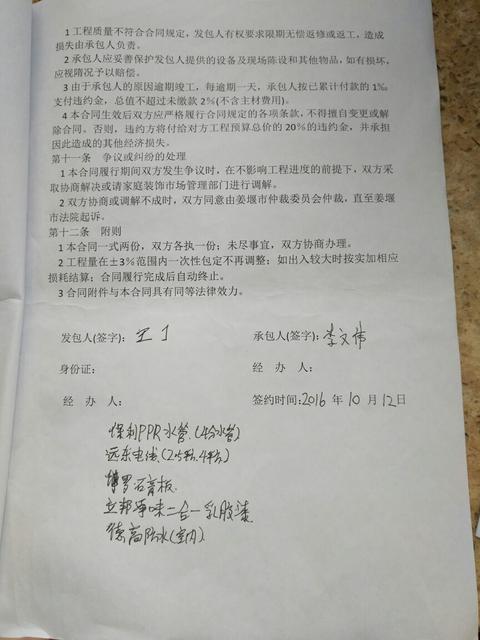 1 工程质量不符合合同规定，发包人有权要求限期无偿返修或返工，造成
损失由承包人负责。
2 承包人应妥善保护发包人提供的设备及现场陈设和其他物品，如有损坏，
应视隋况予以赔偿。
3 由于承包人的原因逾期竣工，每逾期一天，承包人按已累计付款的 1‰
支付违约金，总值不超过未缴款 2%(不含主材费用)。
4 本合同生效后双方应严格履行合同规定的各项条款，不得擅自变更或解
除合同。否则，违约方将付给对方工程预算总价的 20%的违约金，并承担
因此造成的其他经济损失。
第十一条 争议或纠纷的处理
1 本合同履行期间双方发生争议时，在不影响工程进度的前提下，双方采
取协商解决或请家庭装饰市场管理部门进行调解。
2 双方协商或调解不成时，双方同意由姜堰市仲裁委员会仲裁，直至姜堰
市法院起诉。
第十二条 附则
1 本合同一式两份，双方各执一份；未尽事宜，双方协商办理。
2 工程量在±3%范围内一次性包定不再调整；如出入较大时按实加相应
损耗结算；合同履行完成后自动终止。
3 合同附件与本合同具有同等法律效力。
发包人(签字)： 承包人(签字)：李文伟
身份证： 经 办 人：
经 办 人： 签约时间:2016 年 10 月 12日
保利PPR水管.(4分水管)
远东电线(2.5平方.4平方)
博罗石膏板
立邦净味二合一乳胶漆
德高防水(室内)